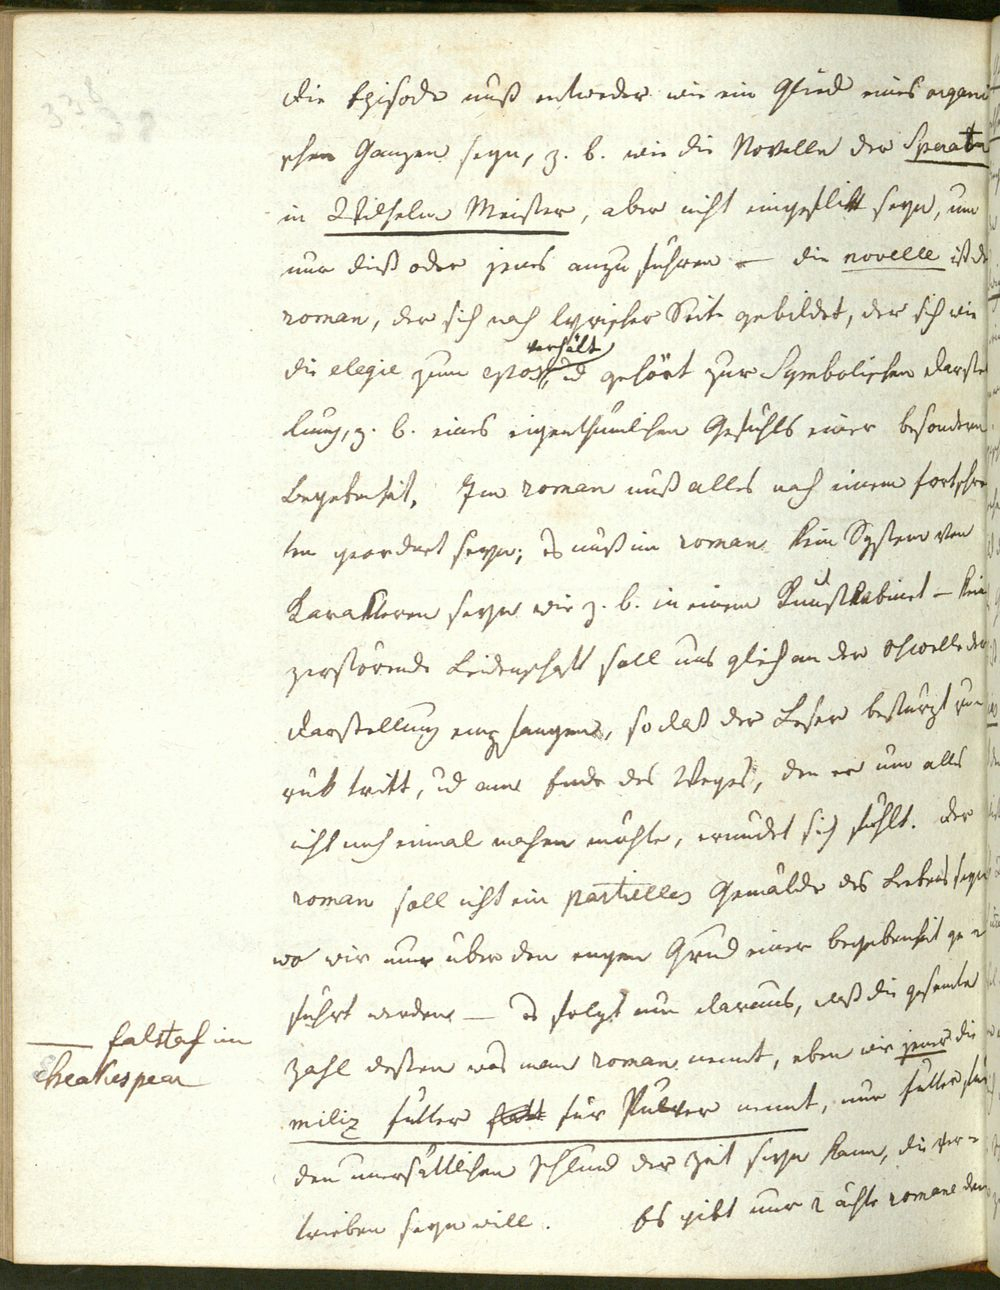 338
38
die Episode muß entweder wie ein Glied eines organi
schen Ganzen seyn, z. b. wie die Novelle der Sperata
in Wilhelm Meister, aber nicht eingeflikt seyn, um
nur dieß oder jenes anzuführen — die novelle ist der
roman, der sich nach lyrischer Seite gebildet, der sich wie
verhält
die elegie zum epos, ud gehört zur Symbolischen Darstel
lung, z. b. eines eigenthümlichen Gefühls einer besondern
Begebenheit. Im roman muß alles nach einem fortschrei
ten geordnet seyn; es muß im roman kein System von
Karakteren seyn wie z. b. in einem Kunstkabinet – kein
zerstörende Leidenschaft soll uns gleich an der Schwelle der
Darstellung empfangen, so daß der Leser bestürzt zu
rük tritt, ud am Ende des Weges, den er um alles
nicht noch einmal machen möchte, ermüdet sich fühlt. der
roman soll nicht ein partielles Gemälde des Lebens seyn
wo wir nur über den engen Grund einer begebenheit ge=
führt werden — es folgt nun daraus, daß die gesamte
— falstaf im
Sheakespear
zahl dessen was man roman nennt, eben wie jener die
miliz futter für Pulver nennt, nur futter für
den unersättlichen Schlund der Zeit seyn kann, die ver=
trieben seyn will. Es gibt nur 2 ächte romane den